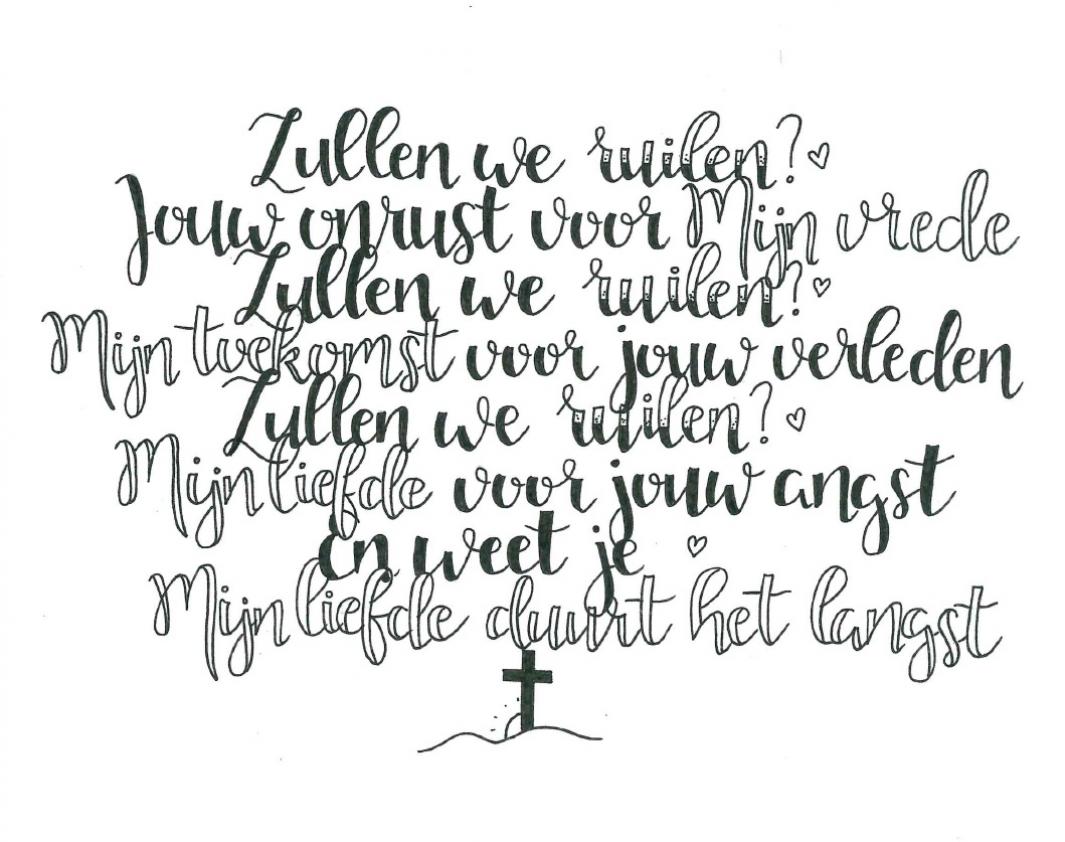 Zullen we ruilen?
Jouw onrust voor Mijn vrede
Zullen we ruilen?
Mijn toekomst voor jouw verleden
Zullen we ruilen?
Mijn liefde voor jouw angst
En weet je
Mijn liefde duurt het langst